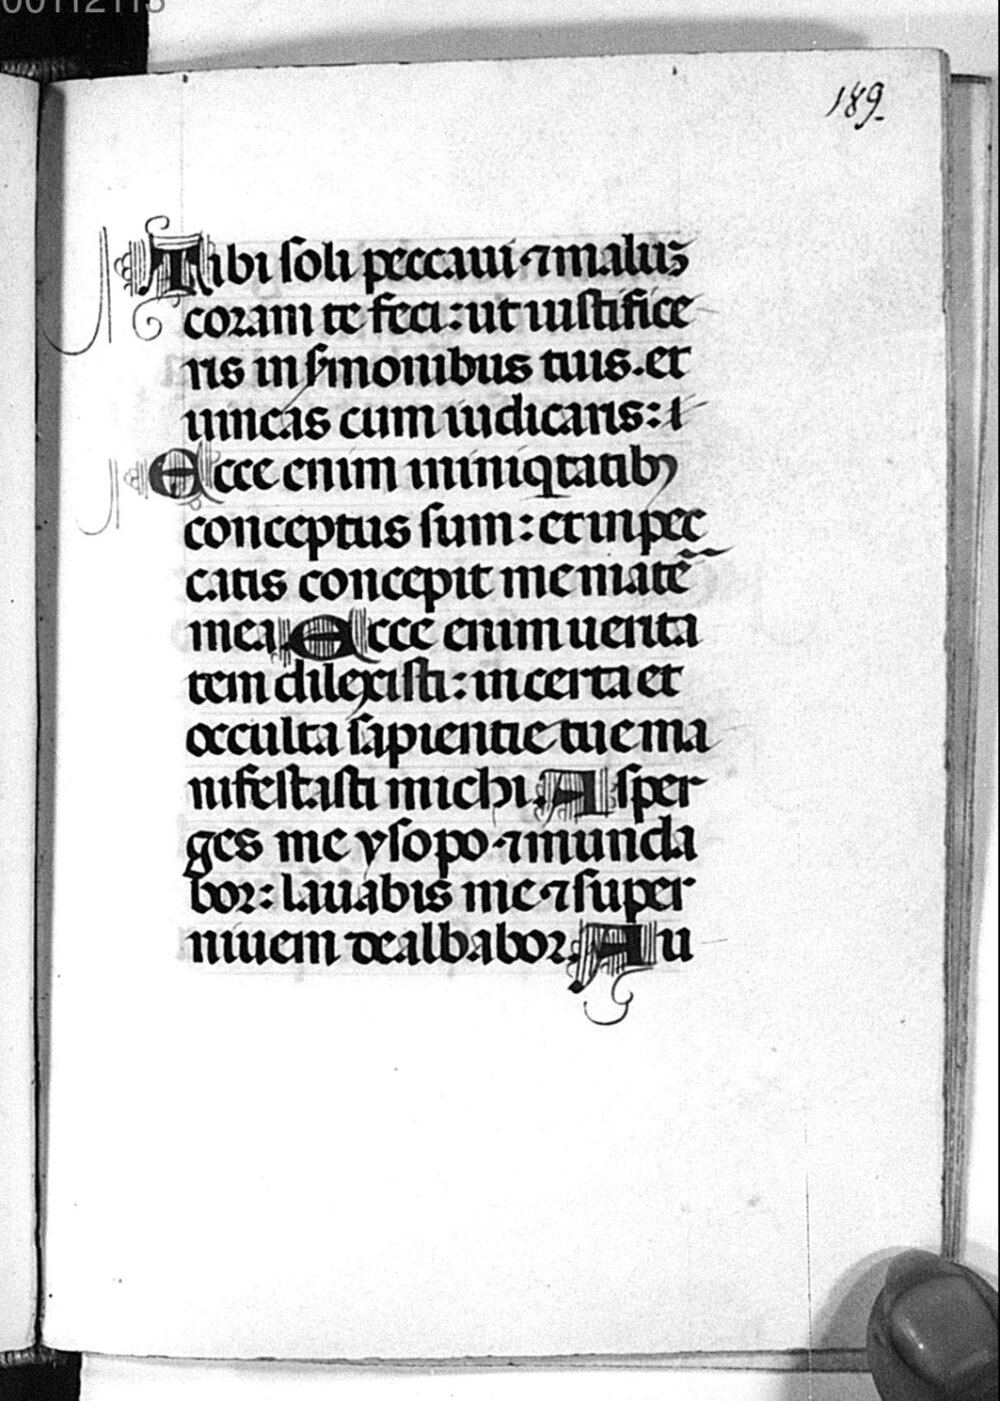 00112113
189.
Tibi soli peccaui ⁊ maluꝫ
coram te feci: ut iustifice
ris in s̓monibus tuis. et
uincas cum iudicaris:
Ecce enim in iniqtatibꝯ
conceptus sum: et in pec
catis concepit me mate᷒
mea. Ecce enim uerita
tem dilexisti: incerta et
occulta sapientie tue ma
nifestasti michi. Asper
ges me ysopo ⁊ munda
bor: lauabis me ⁊ super
niuem dealbabor. Au